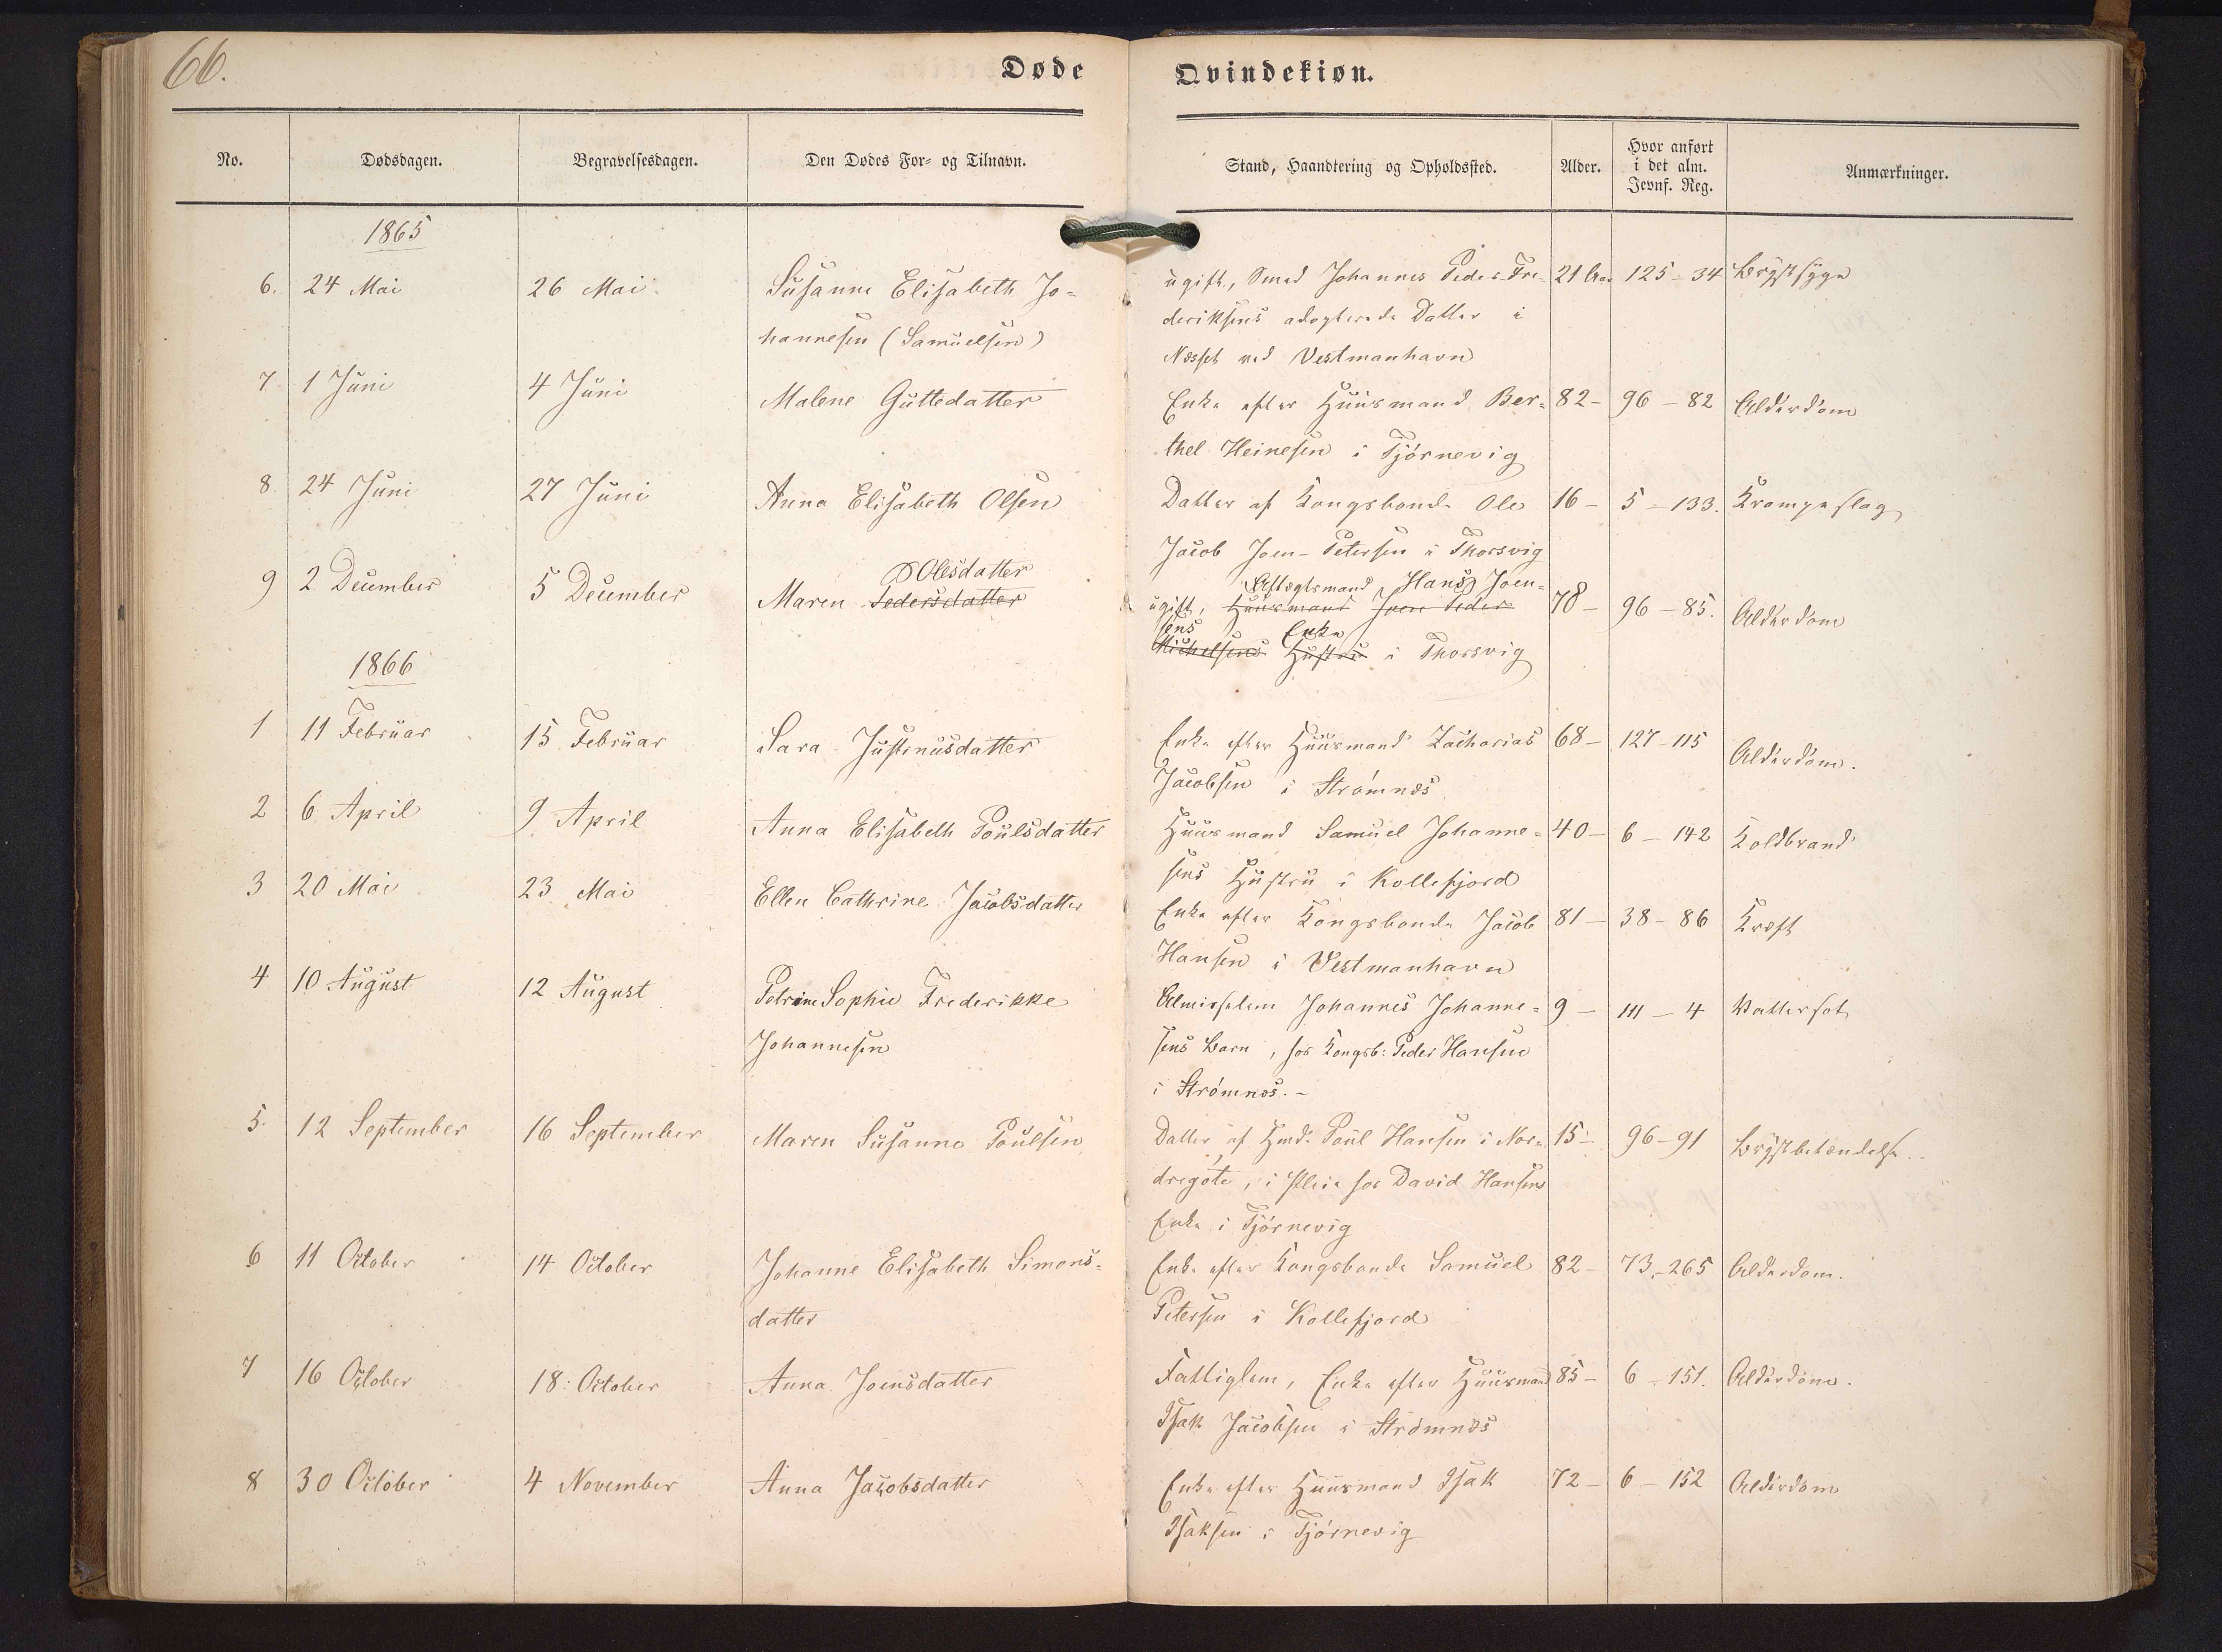 66.
Døde
Qvindekiøn.
No.
Dødsdagen.
Begravelsesdagen.
Den Dødes For- og Tilnavn.
Stand, Haandtering og Opholdssted.
Alder.
Hvor anført
i det alm.
Jevnf. Reg.
Anmærkninger.
1865
6. 24 Mai 26 Mai Susanne Elisabeth Jo- ugift, Smed Johannes Peder Fre- 21 Aar 125-34 Brystsyge
hannesen (Samuelsen) deriksens adopterede Datter i
Næsset ved Vestmanhavn
7 1 Juni 4 Juni Malene Guttedatter Enke efter Huusmand Ber- 82- 96-82 Alderdom
thel Heinesen i Tjörnevig
8. 24 Juni 27 Juni Anna Elisabeth Olsen Datter af Kongsbonde Ole 16- 5-133. Krampeslag
Jacob Joen-Petersen i Thorsvig
Olesdatter Aftægtsmand Hans Joen-
9 2 December 5 December Maren Pedersdatter ugift, Huusmand Joen Peder 78- 96-85. Alderdom
sens Enke
Michelsens Hustru i Thorsvig
1866
1 11 Februar 15 Februar Sara Justinusdatter Enke efter Huusmand Zacharias 68- 127-115 Alderdom.
Jacobsen i Strömnæs
2 6 April 9 April Anna Elisabeth Poulsdatter Huusmand Samuel Johanne- 40- 6-142 Koldbrand
sens Hustru i Kollefjord
3 20 Mai 23 Mai Ellen Cathrine Jacobsdatter Enke efter Kongsbonde Jacob 81- 38-86 Kræft
Hansen i Vestmanhavn
4 10 August 12 August Petrine Sophie Frederikke Almisselem Johannes Johanne- 9- 111-4 Vattersot
Johannesen sens Barn, hos Kongsb: Peder Hansen
i Strömnæs.-
5. 12 September 16 September Maren Susanne Poulsen Datter af Hmd. Poul Hansen i Nor- 15- 96-91 Brystbetændelse.
dregöte, i Pleie hos David Hansens
Enke i Tjörnevig
6 11 October 14 October Johanne Elisabeth Simons- Enke efter Kongsbonde Samuel 82- 73-265 Alderdom.
datter Petersen i Kollefjord
7 16 October 18. October Anna Joensdatter Fattiglem, Enke efter Huusmand 85- 6-151. Alderdom.
Isak Jacobsen i Strömnæs
8 30 October 4 November Anna Jacobsdatter Enke efter Huusmand Isak 72- 6-152 Alderdom
Isaksen i Tjörnevig